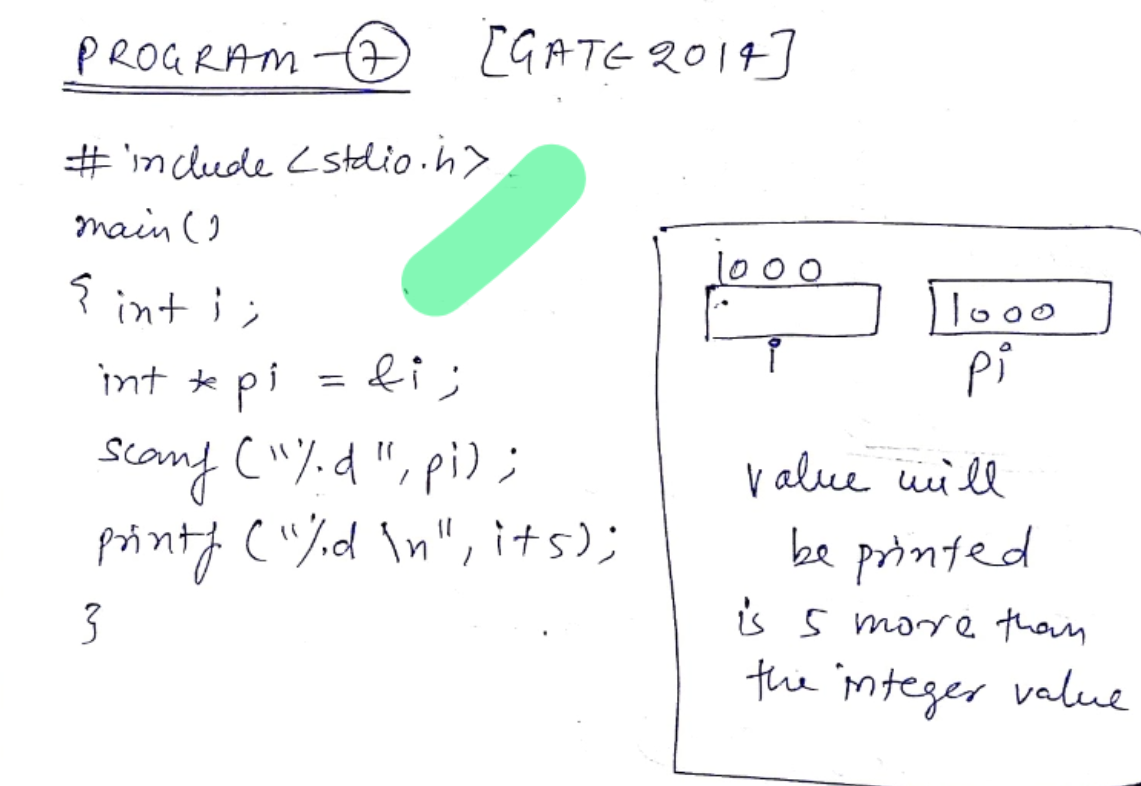 PROGRAM-7 [GATE 2014]
#include <stdio.h>
main()
{ int i;
int *pi = &i;
scanf ("%d", pi);
printf ("%d \n", i+5);
}
1000
1000
i pi
value will
be printed
is 5 more than
the integer value